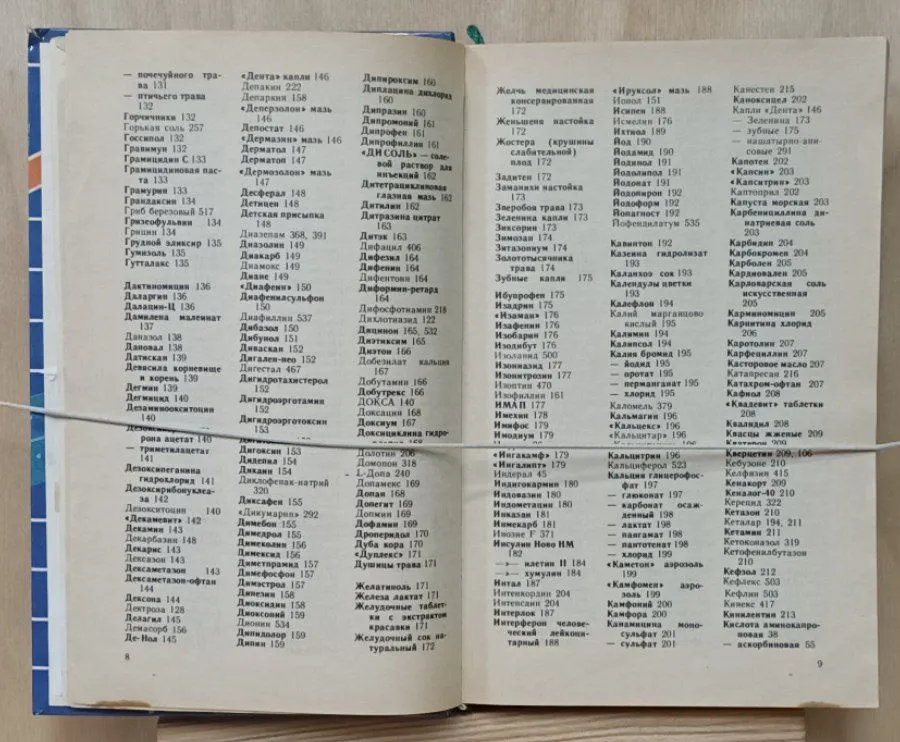 — почечуйного тра-
ва 131
— птичьего трава
132
Горчичники 132
Горькая соль 257
Госсипол 132
Гравимун 132
Грамицидин С 133
Грамицидиновая пас-
та 133
Грамурин 133
Грандаксин 134
Гриб березовый 517
Гризеофульвин 134
Грицин 134
Грудной эликсир 135
Гумизоль 135
Гутталакс 135
Дактиномицин 136
Даларгин 136
Далацин-Ц 136
Дамилена малеинат
137
Даназол 138
Дановал 138
Датискан 139
Девясила корневище
и корень 139
Дегмин 139
Дегмицид 140
Дезаминоокситоцин
140
рона ацетат 140
— триметилацетат
141
Дезоксипеганина
гидрохлорид 141
Дезоксирибонуклеа-
за 142
Дезокситоцин 140
«Декамевит» 142
Декамин 143
Декарбазин 148
Декарис 143
Дексазон 143
Дексаметазон 143
Дексаметазон-офтан
144
Дексона 144
Дектроза 128
Делагил 145
Демасорб 156
Де-Нол 145
8
«Дента» капли 146
Депакин 222
Депаркин 158
«Деперзолон» мазь
146
Депостат 146
«Дермазин» мазь 146
Дерматол 147
Дерматон 147
«Дермозолон» мазь
147
Десферал 148
Детицен 148
Детская присыпка
148
Диазепам 368, 391
Диазолин 149
Диакарб 149
Диамокс 149
Диане 149
«Диафеин» 150
Диафенилсульфон
150
Диафиллин 537
Дибазол 150
Дибунол 151
Диваскан 152
Дигален-нео 152
Дигестал 467
Дигидротахистерол
152
Дигидроэрготамин
152
Дигидроэрготоксин
153
Дигоксин 153
Дидепил 154
Дикаин 154
Диклофенак-натрий
320
Диксафен 155
«Дикумарин» 292
Димебон 155
Димедрол 155
Димеколин 156
Димексид 156
Диметпрамид 157
Димефосфон 157
Димэстрол 157
Динезин 158
Диоксидин 158
Диоксоний 159
Дионин 534
Дипидолор 159
Дипин 159
Дипироксим 160
Диплацина дихлорид
160
Дипразин 160
Дипромоний 161
Дипрофен 161
Дипрофиллин 161
«ДИСОЛЬ» — соле-
вой раствор для
инъекций 162
Дитетрациклиновая
глазная мазь 162
Дитилин 162
Дитразина цитрат
163
Дитэк 163
Дифацил 406
Дифезил 164
Дифенин 164
Дифентоин 164
Диформин-ретард
164
Дифосфотиамин 218
Дихлотиазид 122
Дицинон 165, 532
Диэтиксим 165
Диэтон 166
Добезилат кальция
167
Добутамин 166
Добутрекс 166
ДОКСА 140
Доксацин 168
Доксиум 167
Доксициклина гидро-
Долотин 206
Домопон 318
L-Допа 240
Допамекс 169
Допан 168
Допегит 169
Допмин 169
Дофамин 169
Дроперидол 170
Дуба кора 170
«Дуплекс» 171
Душицы трава 171
Желатиноль 171
Железа лактат 171
Желудочные таблет-
ки с экстрактом
красавки 171
Желудочный сок на-
туральный 172
Желчь медицинская
консервированная
172
Женьшеня настойка
172
Жостера (крушины
слабительной)
плод 172
Задитен 172
Заманихи настойка
173
Зверобоя трава 173
Зеленина капли 173
Зиксорин 173
Зимозан 174
Зитазониум 174
Золототысячника
трава 174
Зубные капли 175
Ибупрофен 175
Изадрин 175
«Изаман» 176
Изафенин 176
Изобарин 176
Изодибут 176
Изоланид 500
Изониазид 177
Изонитрозин 177
Изоптин 470
Изофиллин 161
ИМАП 177
Имехин 178
Имифос 179
Имодиум 179
«Ингакамф» 179
«Ингалипт» 179
Индерал 45
Индигокармин 180
Индовазин 180
Индометацин 180
Инказан 181
Инмекарб 181
Инозие F 371
Инсулин Ново НМ
182
—»— илетин II 184
—»— хумулин 184
Интал 187
Интенкордин 204
Интенсаин 204
Интерлок 187
Интерферон челове-
ческий лейкоци-
тарный 188
«Ируксол» мазь 188
Ионол 151
Исипен 188
Исмелин 176
Ихтиол 189
Йод 190
Йодамид 190
Йодинол 191
Йодолипол 191
Йодонат 191
Йодопирон 192
Йодоформ 192
Йопагност 192
Йофендилатум 535
Кавинтон 192
Казеина гидролизат
193
Каланхоэ сок 193
Календулы цветки
193
Калефлон 194
Калий марганцово
кислый 195
Калимин 194
Калипсол 194
Калия бромид 195
— йодид 195
— оротат 195
— перманганат 195
— хлорид 195
Каломель 379
Кальмагин 196
«Кальцекс» 196
«Кальцитар» 196
Кальцитрин 196
Кальциферол 523
Кальция глицерофос-
фат 197
— глюконат 197
— карбонат осаж-
денный 198
— лактат 198
— пангамат 198
— пантотенат 198
— хлорид 199
«Каметон» аэрозоль
199
«Камфомен» аэро-
золь 199
Камфоний 200
Камфора 200
Канамицина моно-
сульфат 201
— сульфат 201
Канестен 215
Каноксицел 202
Капли «Дента» 146
— Зеленина 173
— зубные 175
— нашатырно-ани-
совые 291
Капотен 202
«Капсин» 203
«Капситрин» 203
Каптоприл 202
Капуста морская 203
Карбенициллина ди-
натриевая соль
203
Карбидин 204
Карбокромен 204
Карболен 205
Кардиовален 205
Карловарская соль
искусственная
205
Карминомицин 205
Карнитина хлорид
206
Каротолин 207
Карфециллин 207
Касторовое масло 207
Катапресан 216
Катахром-офтан 207
Кафиол 208
«Квадевит» таблетки
208
Квалидил 208
Квасцы жженые 209
Кватерон 209
Кверцетин 209, 106
Кебузоне 210
Келфизин 415
Кенакорт 209
Кеналог-40 210
Керепид 322
Кетазон 210
Кеталар 194, 211
Кетамин 211
Кетоконазол 319
Кетофенилбутазон
210
Кефзол 212
Кефлекс 503
Кефлин 503
Кинекс 417
Кинилентин 213
Кислота аминокапро-
новая 38
— аскорбиновая 55
9